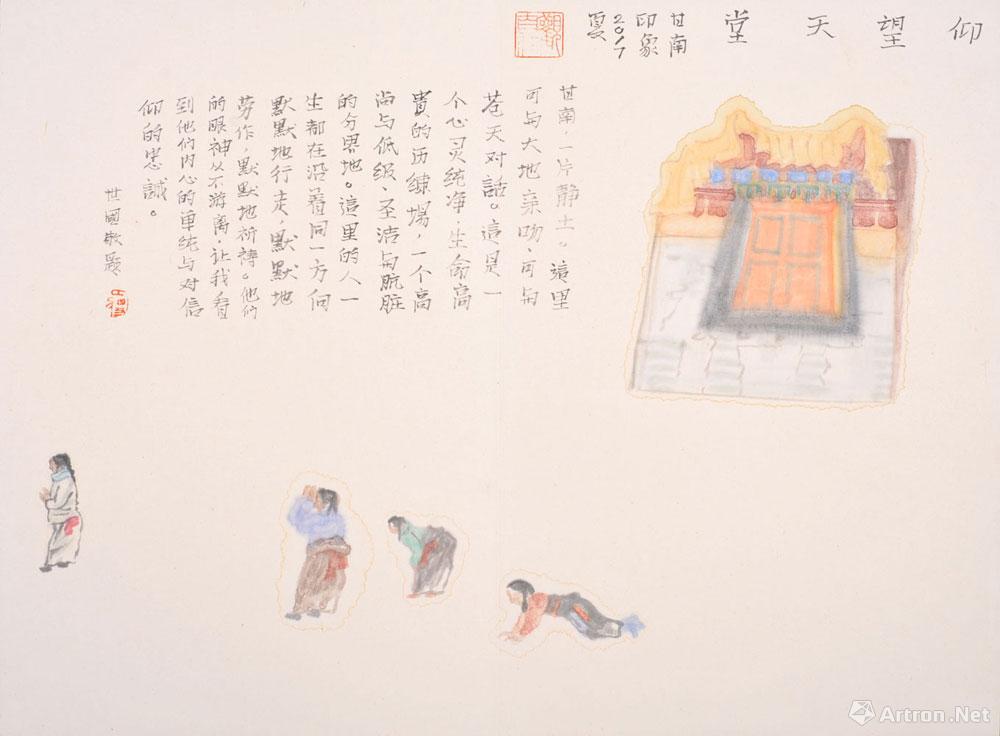 仰望天堂
甘南
印象
2017
夏
甘南，一片靜土。這里
可与大地亲吻，可与
苍天对話。這是一
个心灵纯净，生命高
貴的历鍊場，一个高
尚与低级、圣洁与肮脏
的分界地。這里的人一
生都在沿着同一方向
默默地行走，默默地
劳作，默默地祈祷。他们
的眼神从不游离，让我看
到他们内心的单纯与对信
仰的忠誠。
世國敬题
Artron.Net